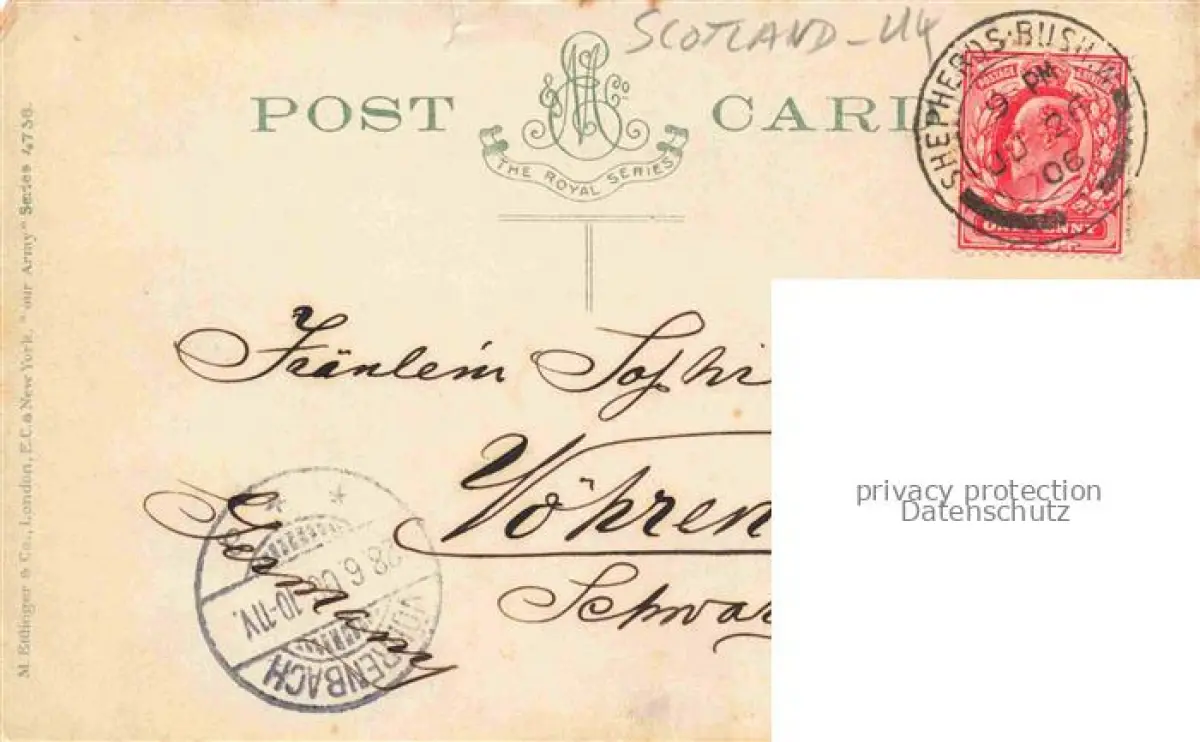 SCOTLAND - U4
POST CARD
THE ROYAL SERIES
SHEPHERDS·BUSH·
9 PM
JU 26
06
POSTAGE
ONE PENNY
M. Ettlinger & Co., London, E.C. & New York. "our Army" Series 4738.
Fräulein Sophi
Vöhren
Schwar
Germany
VÖHRENBACH
28.6.06
10-11V.
privacy protection
Datenschutz